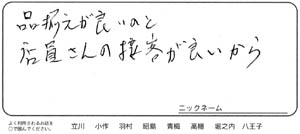 品揃えが良いのと
店員さんの接客が良いから
ニックネーム
よく利用されるお店を
○で囲んでください。
立川 小作 羽村 昭島 青梅 高穂 堀之内 八王子